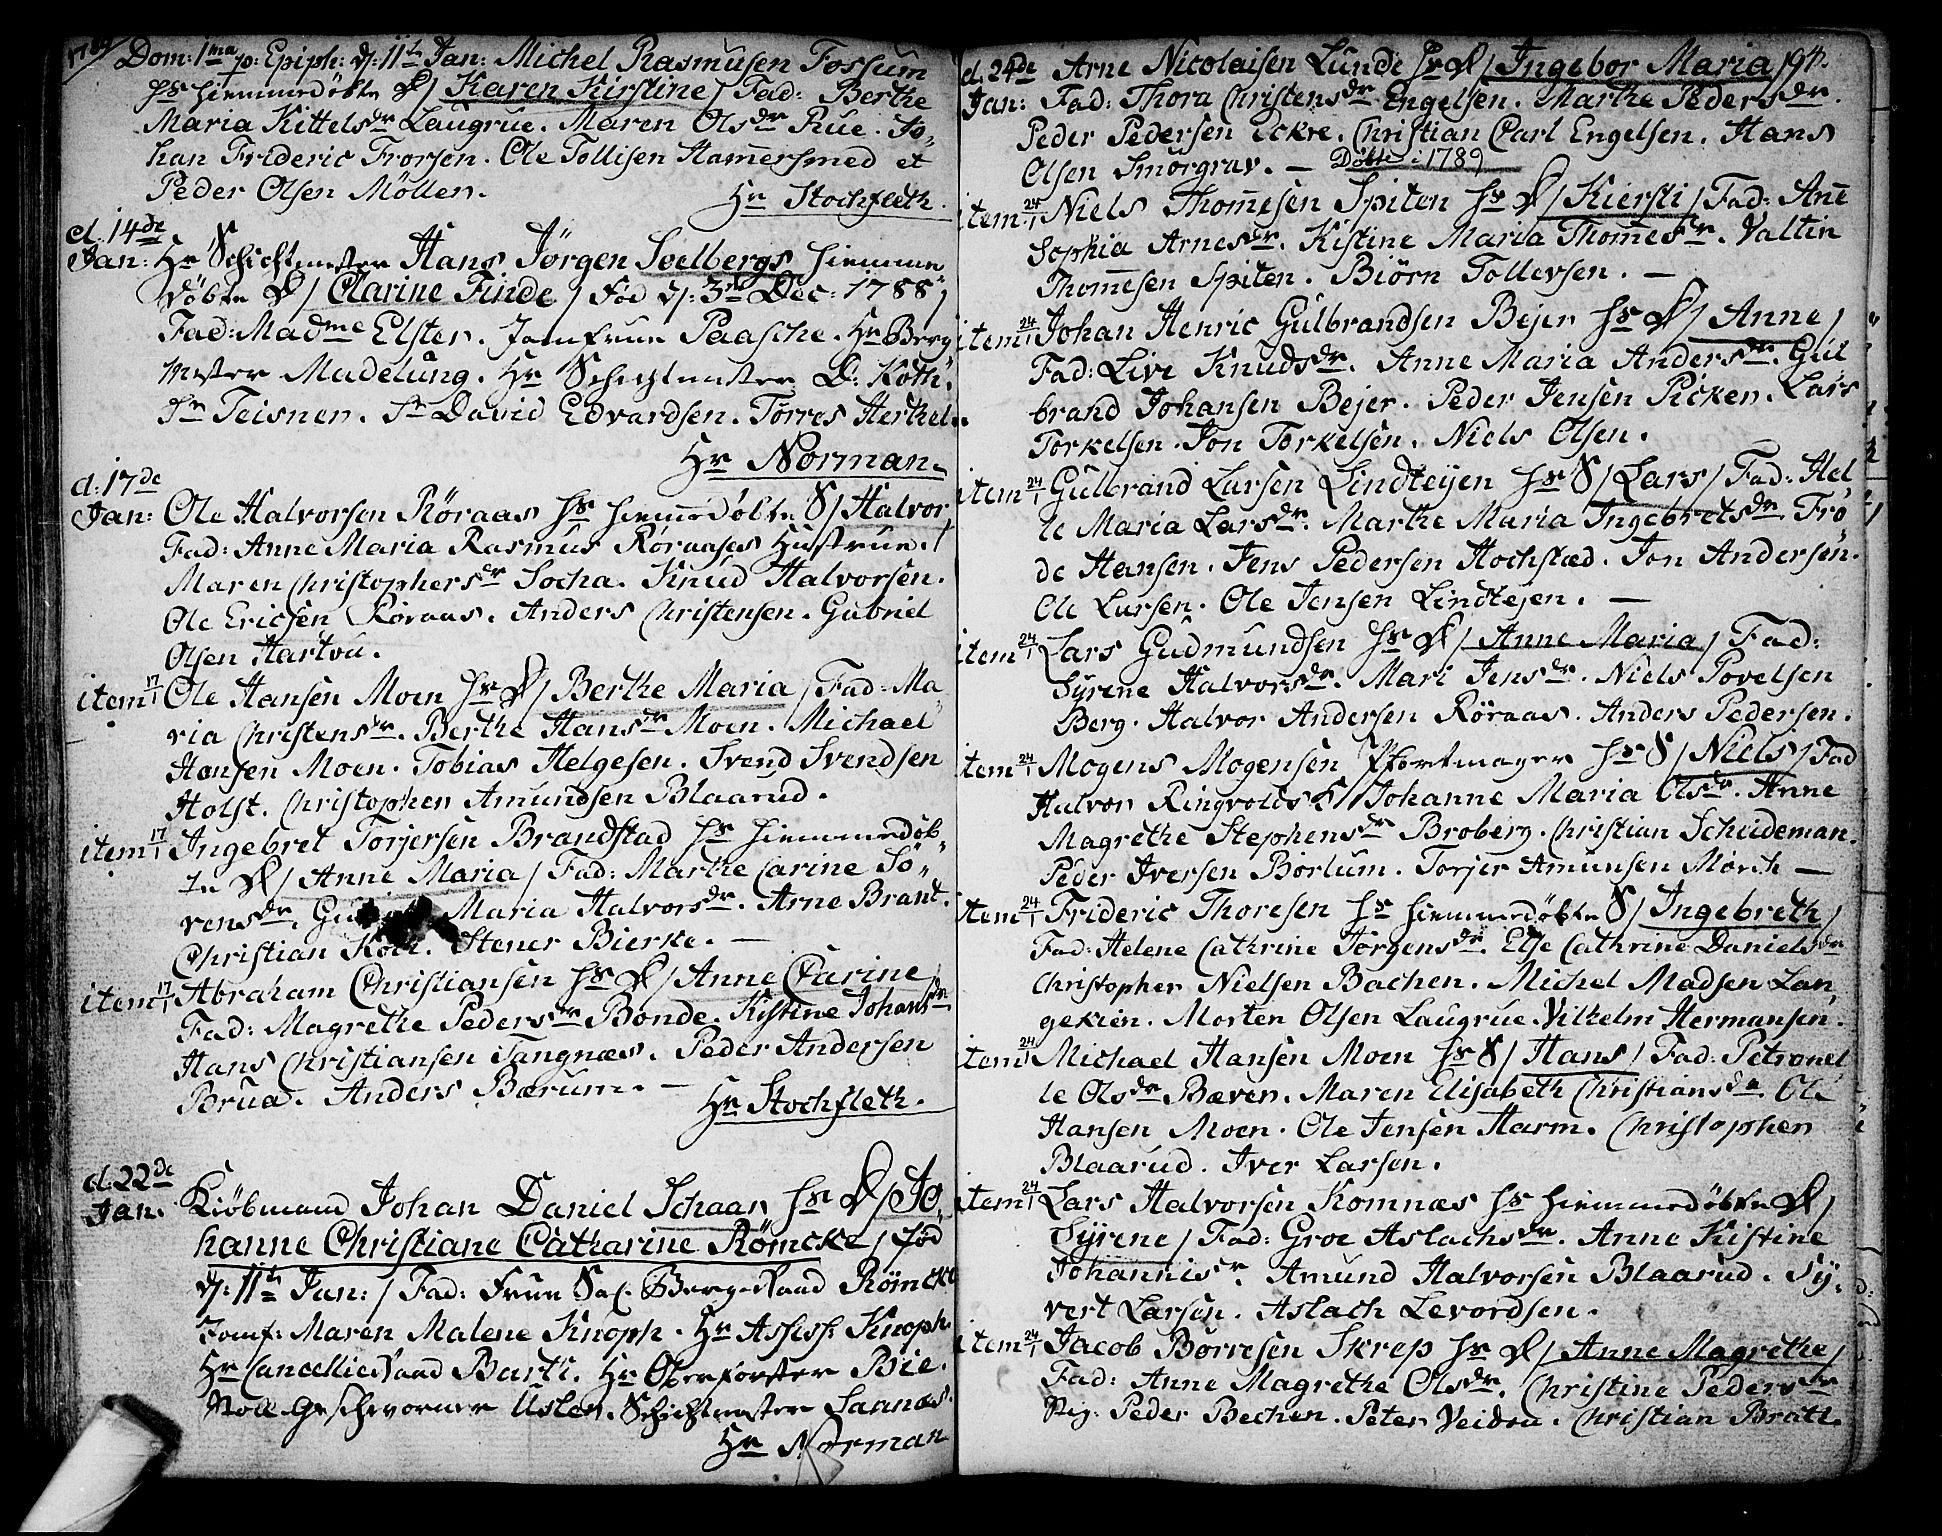 1789
Dom: 1ma p: Epiph: d: 11te Jan: Michel Rasmusen Fossum
hs hiemmedøbte D/ Karen Kirstine/ Fad: Berthe
Maria Kittelsdr Laugrue. Maren Olsdr Rue. Jo-
han Frideric Frorsen. Ole Tollisen Hamersmed et
Peder Olsen Möllen.
Hr Stochfleth.
d. 14de
Jan: Hr Schichtmester Hans Jörgen Soelbergs hiemme
døbte D/ Clarine Finde/ Fød d: 3de Dec: 1788/
Fad: Madme Elster. Jomfrue Paasche. Hr Berg
mester Madelung. Hr Schichtmester D: Koth.
Sr Teisner. Sr David Edvardsen. Torres Herthel.
Hr Norman.
d: 17de
Jan: Ole Halvorsen Röraas hs hiemmedøbte S/ Halvor/
Fad: Anne Maria Rasmus Röraases Hustrue.
Maren Christophersdr Socha. Knud Halvorsen.
Ole Ericsen Röraas. Anders Christensen. Gabriel
Olsen Hartvu.
item 17/1 Ole Hansen Moen hs D/ Berthe Maria/ Fad: Ma-
ria Christensdr. Berthe Hansdr Moen. Michael
Hansen Moen. Tobias Helgesen. Svend Svendsen
Holst. Christopher Amundsen Blaarud.
item 17/1 Ingebret Torjersen Brandstad hs hiemmedøb-
te D/ Anne Maria/ Fad: Marthe Carine Sö-
rensdr. Maria Halvorsdr. Arne Brant.
Christian Koth. Stener Bierke. —
item 17/1 Abraham Christiansen hs D/ Anne Carine/
Fad: Magrethe Pedersdr Bonde. Kistine Johansdr
Hans Christiansen Tangnæs. Peder Andersen
Brua. Anders Bærum. —
Hr Stochfleth.
d. 22de
Jan. Kiöbmand Johan Daniel Schaar hs D/ Jo-
hanne Christiane Catharine Römcke/ fød
d: 11te Jan:/ Fad: Frue Sal. Bergraad Römcke
Jomf: Maren Malene Knoph. Hr Assess: Knoph.
Hr Cancellieraad Barth. Hr Oberförster Bie.
Geschworner Usler. Schichtmester Saanæs.
Hr Norman
94.
d. 24de Arne Nicolaisen Lunde hs D/ Ingebor Maria/
Jan: Fad: Thora Christensdr Engelsen. Marthe Pedersdr.
Peder Pedersen Eckre. Christian Carl Engelsen. Hans
Olsen Smorgrav. — Døbte 1789
item 24/1 Niels Thommesen Spiten hs D/ Kiersti/ Fad: Anne
Sophia Arnesdr. Kistine Maria Thommesdr. Valtin
Thommesen Spiten. Biörn Tollevsen. —
item 24/1 Johan Henric Gulbrandsen Bejer hs D/ Anne/
Fad: Live Knudsdr. Anne Maria Andersdr. Gul
brand Johansen Bejer. Peder Jensen Picken. Lars
Torkelsen. Jon Torkelsen. Niels Olsen.
item 24/1 Gulbrand Larsen Lindtejen hs S/ Lars/ Fad: Hel-
le Maria Larsdr. Marthe Maria Ingebretsdr. Frö-
de Hansen. Jens Pedersen Hochstæd. Jon Andersen.
Ole Larsen. Ole Jensen Lindtejen. —
item 24/1 Lars Gudmundsen hs D/ Anne Maria/ Fad:
Syrene Halvorsdr. Mari Jensdr. Niels Povelsen
Berg. Halvor Andersen Röraas. Anders Pedersen.
item 24/1 Mogens Mogensen hs S/ Niels/ Fad
Halvor Ringvolds K/ Johanne Maria Olsdr. Anne
Magrethe Stephensdr Broberg. Christian Scheideman.
Peder Iversen Borlum. Torjer Amunsen Mörch —
item 24/1 Frideric Thoresen hs hiemmedøbte S/ Ingebreth/
Fad: Helene Cathrine Jörgensdr. Else Cathrine Danielsdr
Christopher Nielsen Bachen. Michel Madsen Lan-
gekien. Morten Olsen Laugrue. Vilhelm Hermansen.
item 24/1 Michael Hansen Moen hs S/ Hans/ Fad: Petronel
le Olsdr Bæver. Maren Elisabeth Christiansdr. Ole
Hansen Moen. Ole Jensen Harm. Christopher
Blaarud. Iver Larsen.
item 24/1 Lars Halvorsen Komnæs hs hiemmedøbte D/
Syrene/ Fad: Groe Aslachsdr. Anne Kistine
Johannisdr. Amund Halvorsen Blaarud. Sy-
vert Larsen. Aslach Levordsen.
item 24/1 Jacob Börresen Skrep hs D/ Anne Magrethe/
Fad: Anne Magrethe Olsdr. Christine Pedersdr
Pig. Peder Bechen. Peter Veidou. Christian Bratt.